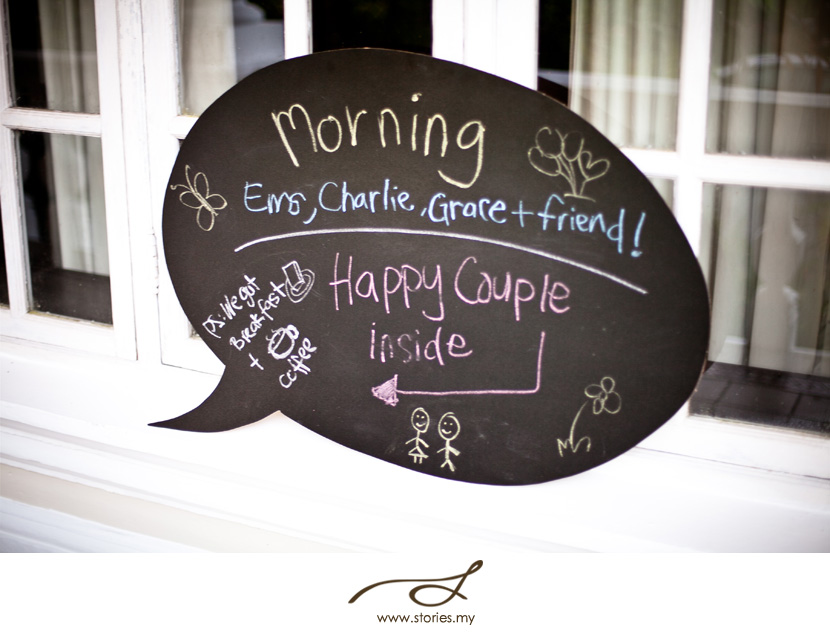 Morning
Ems, Charlie, Grace + friend!
Happy Couple
inside
ps: We got
Breakfast
+
coffee
www.stories.my